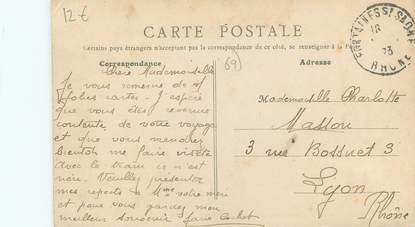 12 €
CARTE POSTALE
Certains pays étrangers n'acceptent pas la correspondance de ce côté, se renseigner à la
Correspondance
Adresse
69)
Chère Mademoiselle
Je vous remercie de
jolies cartes. J'espère
que vous êtes revenues
contente de votre voyage
et que vous
bientôt me faire visite
avec le tram ce n'est
rien. Veuillez présenter
mes respects à Mme votre mère
et pour vous gardez mon
meilleur souvenir
Mademoiselle Charlotte
Massou
3 rue Bossuet 3
Lyon
Rhône
RHONE